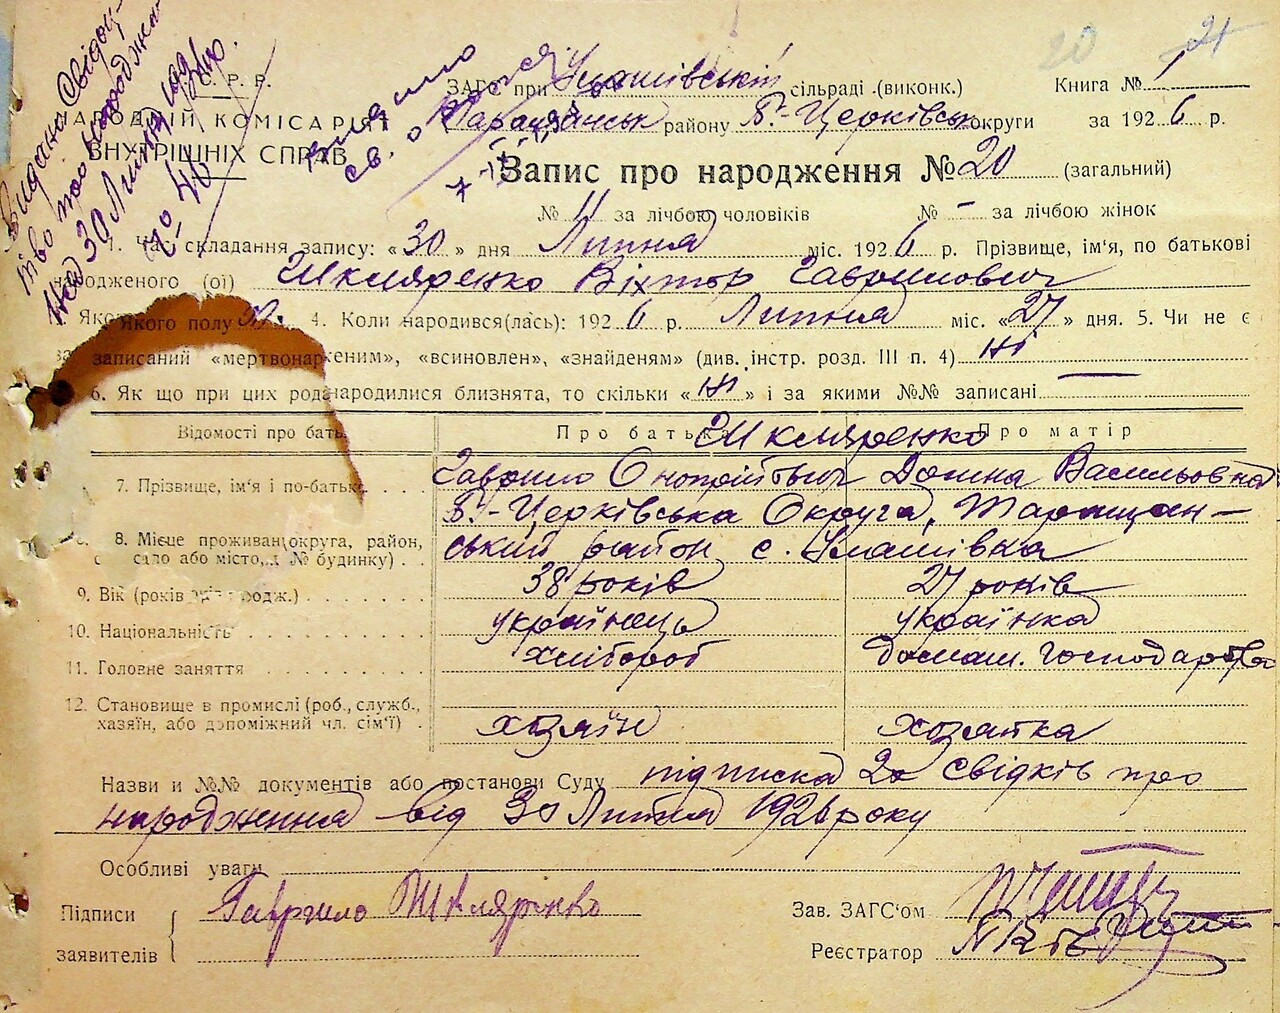 20 21
Видано Свідоц-
тво про народжен-
ня 30 Липня
№ 40
Видано
св. о рожд
С. Р. Р.
НАРОДНІЙ КОМІСАРІЯТ
ВНУТРІШНІХ СПРАВ
ЗАГС при Улашівській сільраді (виконк.) Книга № 1
Таращанськ району Б.-Церківськ округи за 1926 р.
Запис про народження № 20 (загальний)
№ 11 за лічбою чоловіків № - за лічбою жінок
1. Час складання запису: «30» дня Липня міс. 1926 р. Прізвище, ім'я, по батькові
народженого (ої) Шкляренко Віктор Гаврилович
Якого полу 4. Коли народився(лась): 1926 р. Липня міс. «27» дня. 5. Чи не є
записаний «мертвонарженим», «всиновлен», «знайденям» (див. інстр. розд. III п. 4) ні
6. Як що при цих родa народилися близнята, то скільки «ні» і за якими №№ записані —
Відомості про бать Про батька Шкляренко Про матір
7. Прізвище, ім'я і по-батьк Гаврило Онопрійович Домна Васильовна
Б.-Церківська Округа, Таращан-
8. Місце проживан(округа, район, ський район с. Улашівка
село або місто, № будинку)
9. Вік (років 38 років 27 років
10. Національність українець українка
11. Головне заняття хлібороб домаш. господарство
12. Становище в промислі (роб., служб.,
хазяїн, або допоміжний чл. сім'ї) хозяїн хозяйка
Назви и №№ документів або постанови Суду підписка 2х свідків про
народження від 30 Липня 1926 року
Особливі уваги
Підписи Гаврило Шкляренко Зав. ЗАГС'ом
заявителів Реєстратор